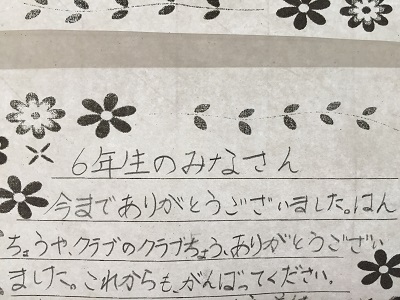 6年生のみなさん
今までありがとうございました。はん
ちょうや、クラブのクラブちょう、ありがとうござい
ました。これからも、がんばってください。